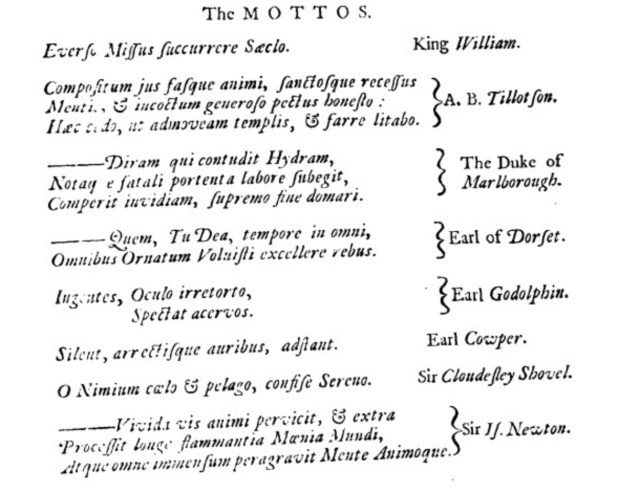 The MOTTOS.
Everso Missus succurrere Sæclo. King William.
Compositum jus fasque animi, sanctosque recessus
Menti., & incoctum generoso pectus honesto :
Hæc cedo, ut admoveam templis, & farre litabo. A. B. Tillotson.
———Diram qui contudit Hydram,
Notaq e fatali portenta labore subegit,
Comperit invidiam, supremo fine domari. The Duke of Marlborough.
———Quem, Tu Dea, tempore in omni,
Omnibus Ornatum Voluisti excellere rebus. Earl of Dorset.
Ingentes, Oculo irretorto,
Spectat acervos. Earl Godolphin.
Silent, arrectisque auribus, adstant. Earl Cowper.
O Nimium cælo & pelago, confise Sereno. Sir Cloudesley Shovel.
———Vivida vis animi pervicit, & extra
Processit longe flammantia Mænia Mundi,
Atque omne immensum peragravit Mente Animoque. Sir Is. Newton.